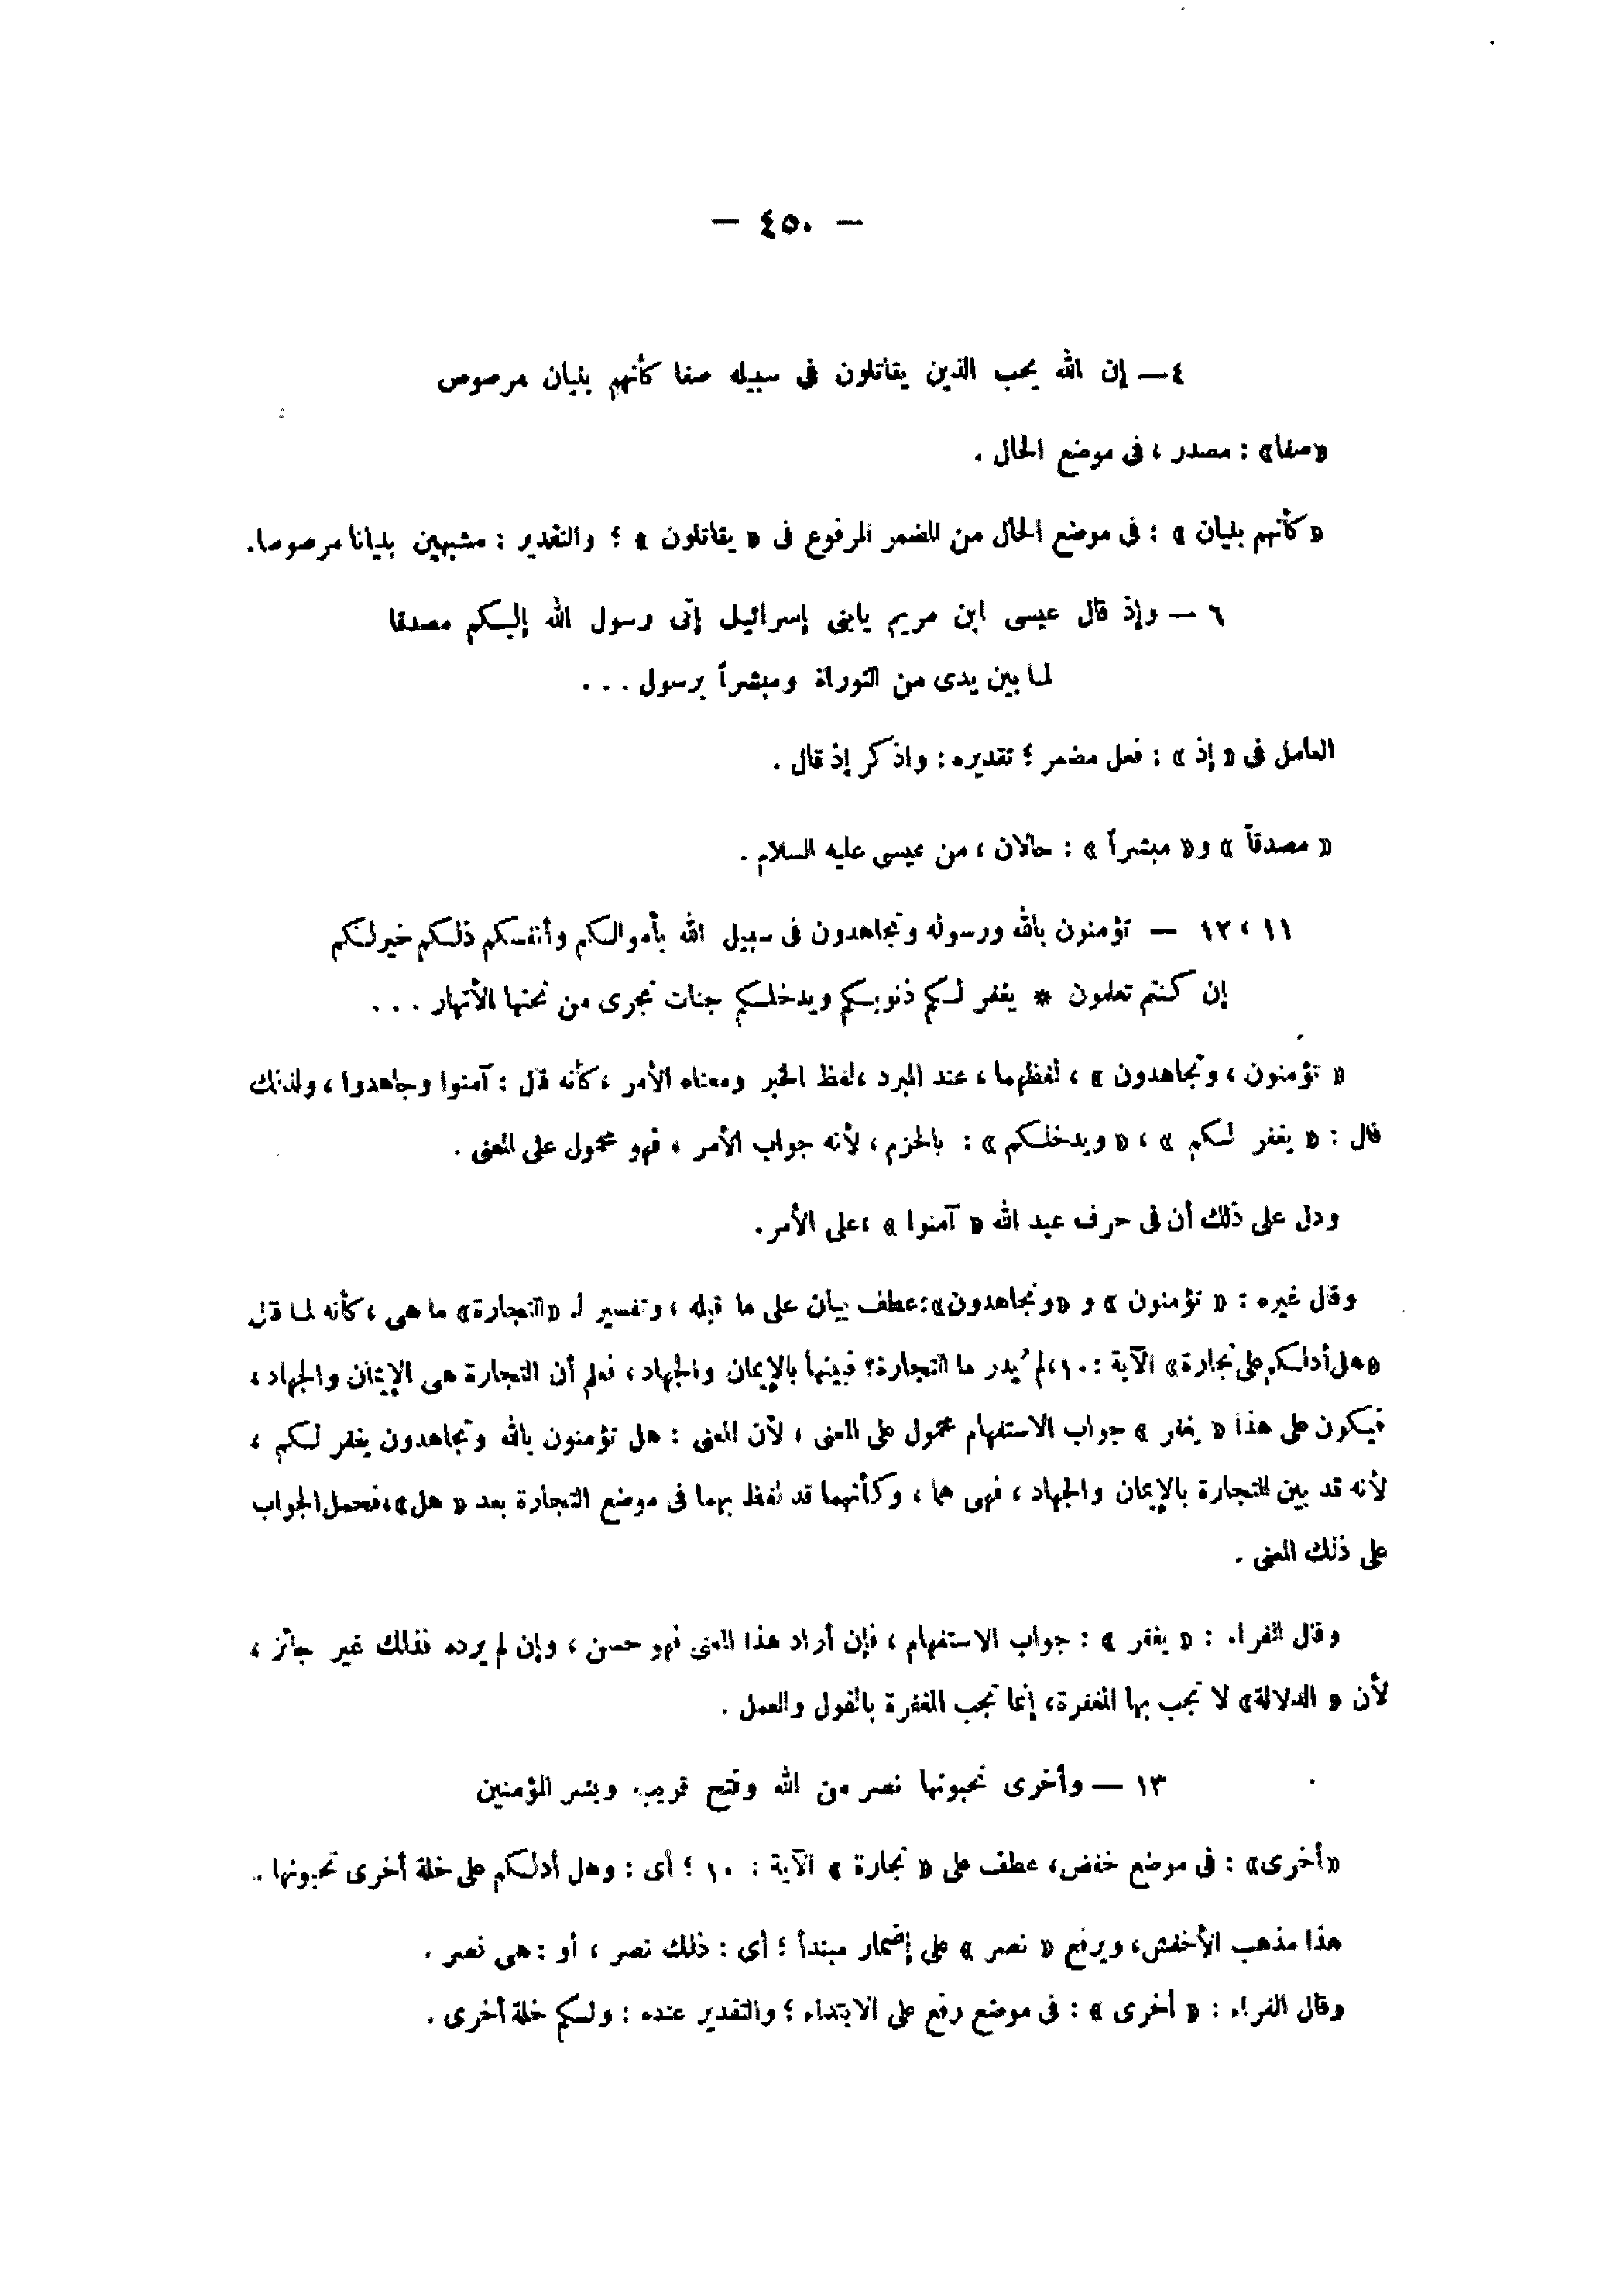 — ٤٥٠ —
٤ — إن الله يحب الذين يقاتلون فى سبيله صفا كأنهم بنيان مرصوص
«صفا» : مصدر ، فى موضع الحال .
« كأنهم بنيان » : فى موضع الحال من المضمر المرفوع فى « يقاتلون » ؛ والتقدير : مشبهين بنيانا مرصوصا.
٦ — وإذ قال عيسى ابن مريم يابنى إسرائيل إنى رسول الله إليكم مصدقا
لما بين يدى من التوراة ومبشراً برسول . . .
العامل فى « إذ » : فعل مضمر ؛ تقديره : واذكر إذ قال .
« مصدقاً » و« مبشراً » : حالان ، من عيسى عليه السلام .
١١ ، ١٢ — تؤمنون بالله ورسوله وتجاهدون فى سبيل الله بأموالكم وأنفسكم ذلكم خير لكم
إن كنتم تعلمون * يغفر لكم ذنوبكم ويدخلكم جنات تجرى من تحتها الأنهار . . .
« تؤمنون ، وتجاهدون » ، لفظهما ، عند المبرد ، لفظ الخبر ومعناه الأمر ، كأنه قال : آمنوا وجاهدوا ، ولذلك
قال : « يغفر لكم » ، « ويدخلكم » : بالجزم ، لأنه جواب الأمر ، فهو محمول على المعنى .
ودل على ذلك أن فى حرف عبد الله « آمنوا » ، على الأمر .
وقال غيره : « تؤمنون » و «وتجاهدون»: عطف بيان على ما قبله ، وتفسير لـ «التجارة» ما هى ، كأنه لما قال
«هل أدلكم على تجارة» الآية : ١٠ ، لم يُدر ما التجارة؟ فبينها بالإيمان والجهاد ، فعلم أن التجارة هى الإيمان والجهاد ،
فيكون على هذا « يغفر » جواب الاستفهام محمول على المعنى ، لأن المعنى : هل تؤمنون بالله وتجاهدون يغفر لكم ،
لأنه قد بين التجارة بالإيمان والجهاد ، فهى هما ، وكأنهما قد لفظ بهما فى موضع التجارة بعد « هل»، فحمل الجواب
على ذلك المعنى .
وقال الفراء : « يغفر » : جواب الاستفهام ، فإن أراد هذا المعنى فهو حسن ، وإن لم يرده فذلك غير جائز ،
لأن « الدلالة» لا تجب بها المغفرة، إنما تجب المغفرة بالقول والعمل .
١٣ — وأخرى تحبونها نصر من الله وفتح قريب وبشر المؤمنين
«أخرى» : فى موضع خفض، عطف على « تجارة » الآية : ١٠ ؛ أى : وهل أدلكم على خلة أخرى تحبونها .
هذا مذهب الأخفش، ويرفع « نصر » على إضمار مبتدأ ؛ أى : ذلك نصر ، أو : هى نصر .
وقال الفراء : « أخرى » : فى موضع رفع على الابتداء ؛ والتقدير عنده : ولكم خلة أخرى .